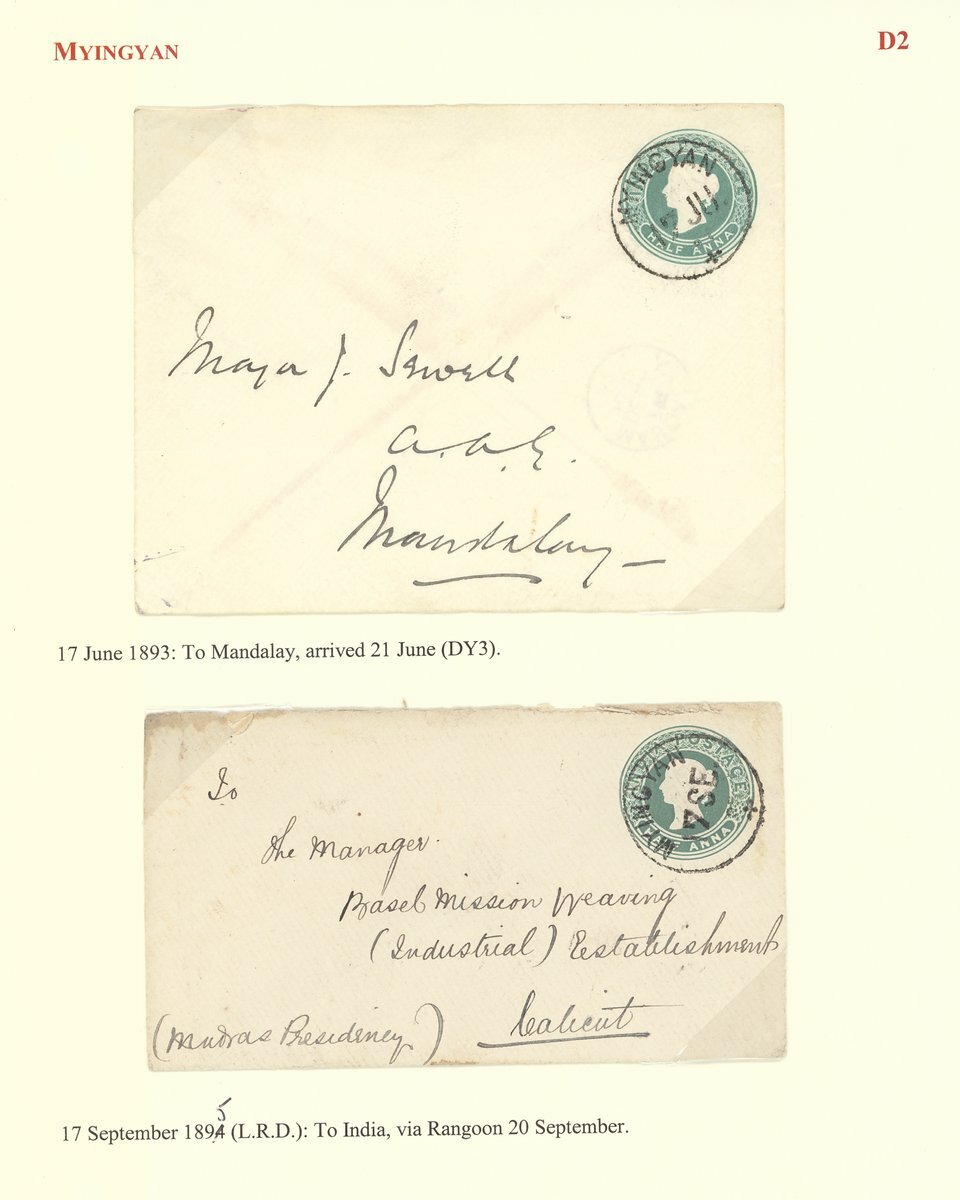 MYINGYAN
D2
MYINGYAN
17 JU
HALF ANNA
Major J. Sewell
A.A.G.
Mandalay
17 June 1893: To Mandalay, arrived 21 June (DY3).
POSTAGE
MYINGYAN
SE
ANNA
To
The Manager.
Basel Mission Weaving
(Industrial) Establishment
Calicut
(Madras Presidency)
5
17 September 1894 (L.R.D.): To India, via Rangoon 20 September.